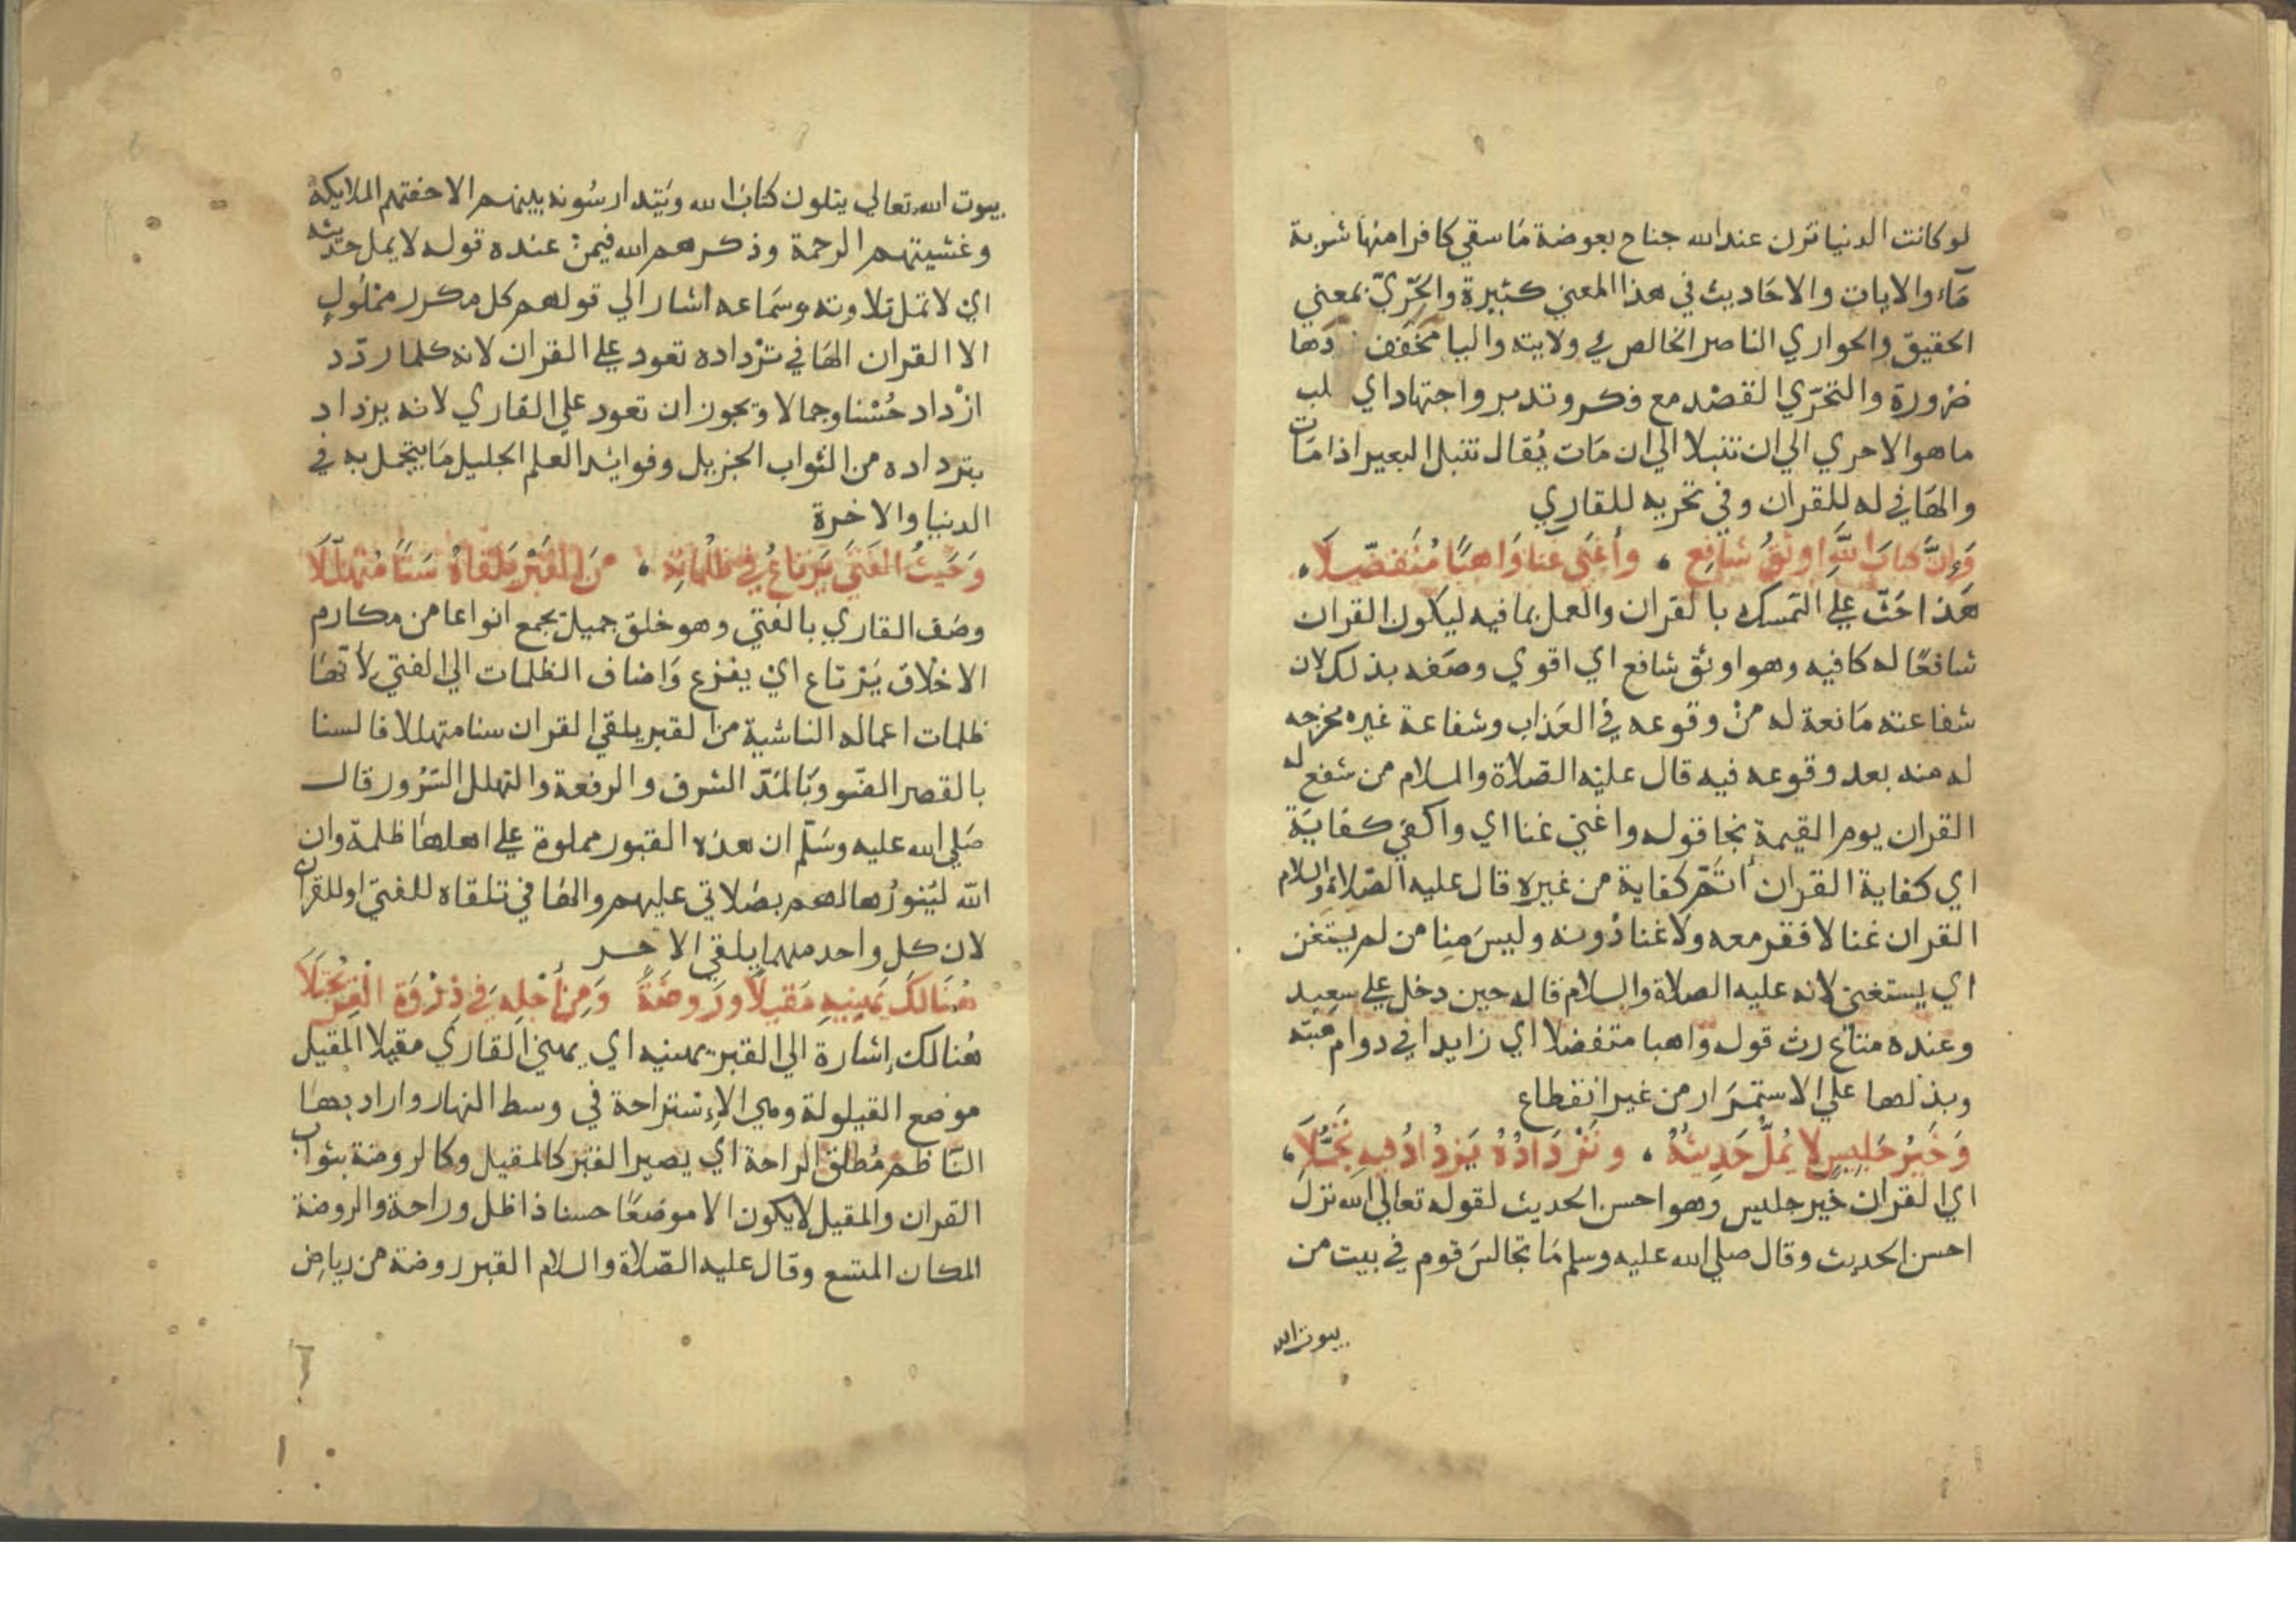 لو كانت الدنيا تزن عند الله جناح بعوضة مَا سقي كافرا منها شربة
مَآء والايات والاحَاديث في هذا المعني كثيرة والحَرِيّ بمعني
الحقيق والحواري الناصر الخالص في ولايته واليا مخفف دَها
ضرورة والتحرّي القصْد مع فكر وتدبر واجتهاد اي لب
ما هو الاحري الي ان تنبلا الي ان مَات يُقال تنبل البعير اذا مَات
والهَا في له للقران وفي تحريه للقاري
وَإِنَّ كتابَ اللَّهِ اوثقُ شافِعٍ ، وأَغنَى غنا وَاهبًا مُتَفَضِّلاَ ،
هَذا حَثّ علي التمسك بالقران والعمل بما فيه ليكون القران
شافعًا له كافيه وهو اوثق شافع اي اقوي وصَفه بذلك لان
شفاعته مَانعة له منْ وقوعه في العَذاب وشفاعة غيره مخرجه
له منه بعد وقوعه فيه قال عليْه الصّلاة والسلام من شفع له
القران يوم القيمة نجا قوله واغني غنا اي واكفي كفايَة
اي كفاية القران أتَمّ كفاية من غيره قال عليه الصّلاة والسلام
القران غنا لا فقر معه ولَا غنا دُونه وليسَ مِنا من لم يتغن
اي يستغني لانه عليه الصلاة والسلام قاله حين دخل علي سعِيد
وعنده متاع رث قوله وَاهبا متفضلا اي زايدا في دوام هبته
وبذلها علي الاستمرَار من غير انقطاع
وَخَيْرُ جَلِيسٍ لا يُمَلُّ حَدِيثُهُ ، وتَرْدَادُهُ يَزْدَادُ فيهِ تَجَمُّلاَ ،
اي القران خير جليس وهو احسن الحديث لقوله تعالي الله نزل
احسن الحديث وقال صلي الله عليه وسلم مَا تجالسَ قوم في بيت من
بيوت الله
بيوت الله تعالي يتلون كتابَ الله ويَتدارسُونه بينهم الا حفتهم الملايكة
وغشيتهم الرحمة وذكرهم الله فيمن عنده قوله لا يمل حديثه
ايْ لا تمل تلاوته وسَماعه اشار الي قولهم كل مكرر ممْلُولٍ
الا القران الهَا في تَرْداده تعود علي القران لانه كلما ردّد
ازْداد حُسْنا وجمالا ويجوز ان تعود علي القاري لانه يزداد
بترداده من الثواب الجزيل وفوايد العلم الجليل مَا يتجمل به في
الدنيا والاخرة
وَحَيْثُ الفَتَى يَرْتاعُ في ظلُمَاتِهِ ، مِنَ القَبْرِ يَلْقَاهُ سَنًا مُتَهَلِّلَا
وصَف القاري بالفتي وهو خلق جميل يجمع انواعا من مكارم
الاخْلاق يَرْتاع ايْ يفزع وَاضاف الظلمات الي الفتي لأنّهَا
ظلمات اعماله الناشية من القبر يلقي القران سنا متهللا فالسنا
بالقصر الضّو وبَالمَدّ الشرف والرفعة والتهلل السّرُور قال
صَلي الله عليه وسَلّم ان هذه القبور مملوة علي اهلها ظلمة وان
اللّه ليُنورُها لهم بصَلاتي عليهم والهَا في تلقاه للفتي او للقران
لان كل واحد منهما يلقي الاخر
هُنَالِكَ يَهْنِيهِ مَقِيلاً ورَوضَةً وَمِنْ أَجْلِهِ فِي ذِرْوَةِ الْعِزِّ يُجْتَلَا
هُنالك إشارة الي القبر يهنيه اي يهني القاري مقيلا المقيل
موضع القيلولة وهي الإسْتراحة في وسط النهار واراد بهَا
النّاظم مُطلق الراحة اي يصير القبر كالمقيل وكالروضة بثواب
القران والمقيل لا يكون الا موضعًا حسنا ذا ظل وراحة والروضة
المكان المتسع وقال عليه الصّلاة والسلام القبر روضة من رياض